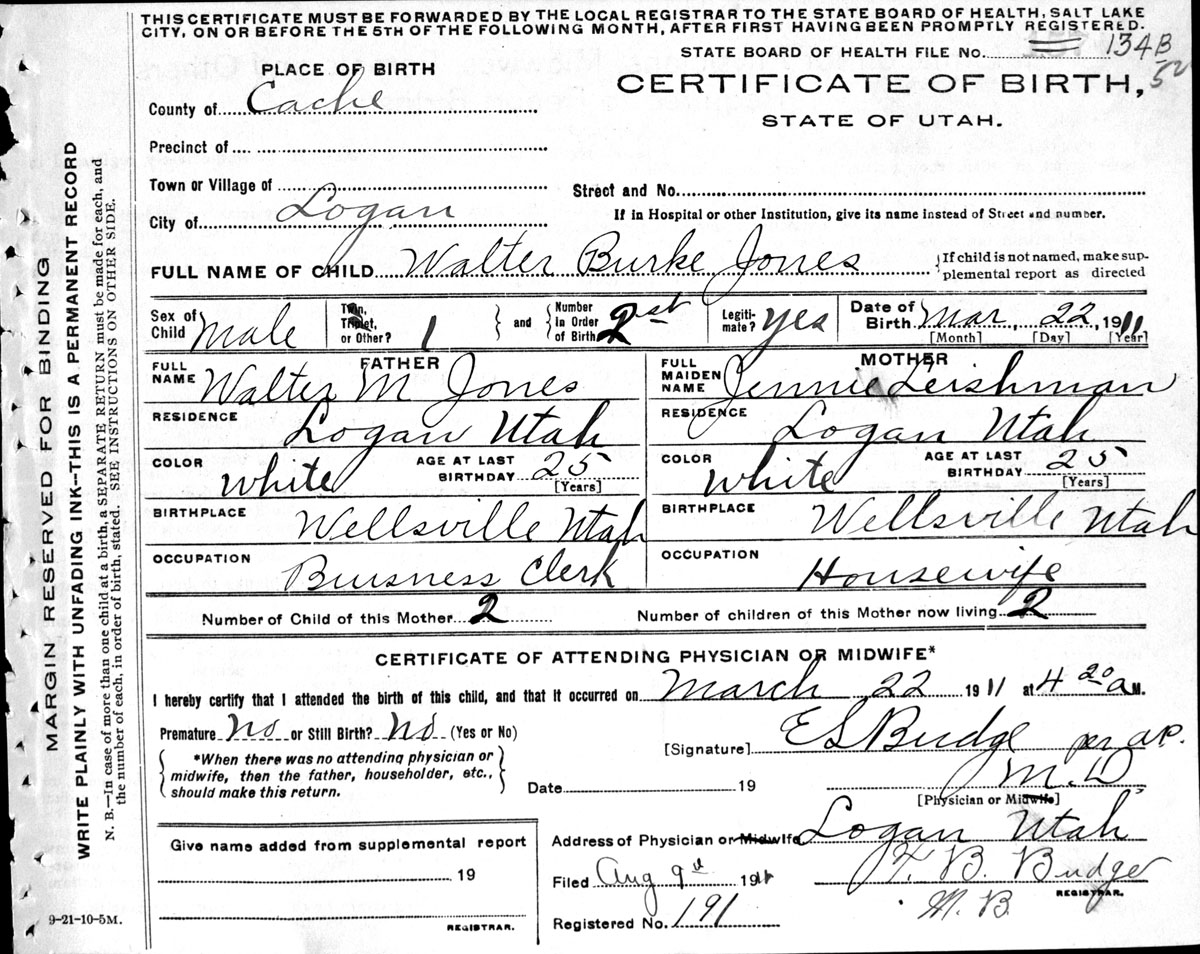 THIS CERTIFICATE MUST BE FORWARDED BY THE LOCAL REGISTRAR TO THE STATE BOARD OF HEALTH, SALT LAKE
CITY, ON OR BEFORE THE 5TH OF THE FOLLOWING MONTH, AFTER FIRST HAVING BEEN PROMPTLY REGISTERED.
STATE BOARD OF HEALTH FILE No. 134B
52
PLACE OF BIRTH
CERTIFICATE OF BIRTH,
STATE OF UTAH.
County of Cache
Precinct of
Town or Village of
Street and No.
City of Logan
If in Hospital or other Institution, give its name instead of Street and number.
FULL NAME OF CHILD Walter Burke Jones
If child is not named, make sup-
plemental report as directed
Sex of Child Male
Twin, Triplet, or Other? 1
and
Number in Order of Birth
Legiti-mate? yes
Date of Birth Mar, 22, 1911
[Month] [Day] [Year]
FATHER
FULL NAME Walter M Jones
RESIDENCE Logan Utah
COLOR White AGE AT LAST BIRTHDAY 25
[Years]
BIRTHPLACE Wellsville Utah
OCCUPATION Buisness Clerk
MOTHER
FULL MAIDEN NAME Jennie Leishman
RESIDENCE Logan Utah
COLOR White AGE AT LAST BIRTHDAY 25
[Years]
BIRTHPLACE Wellsville Utah
OCCUPATION Housewife
Number of Child of this Mother 2 Number of children of this Mother now living 2
CERTIFICATE OF ATTENDING PHYSICIAN OR MIDWIFE*
I hereby certify that I attended the birth of this child, and that it occurred on March 22 1911 at 4 20 a M.
Premature No or Still Birth? No (Yes or No)
*When there was no attending physician or
midwife, then the father, householder, etc.,
should make this return.
[Signature] E S Budge per a.P.
M.D
Date 19
[Physician or Midwife]
Address of Physician or Midwife Logan Utah
Give name added from supplemental report
19
REGISTRAR.
Filed Aug 9th 1911
B. Budge
REGISTRAR.
M. B.
Registered No. 191
9-21-10-5M.
MARGIN RESERVED FOR BINDING
WRITE PLAINLY WITH UNFADING INK--THIS IS A PERMANENT RECORD
N. B.—In case of more than one child at a birth, a SEPARATE RETURN must be made for each, and
the number of each, in order of birth, stated. SEE INSTRUCTIONS ON OTHER SIDE.